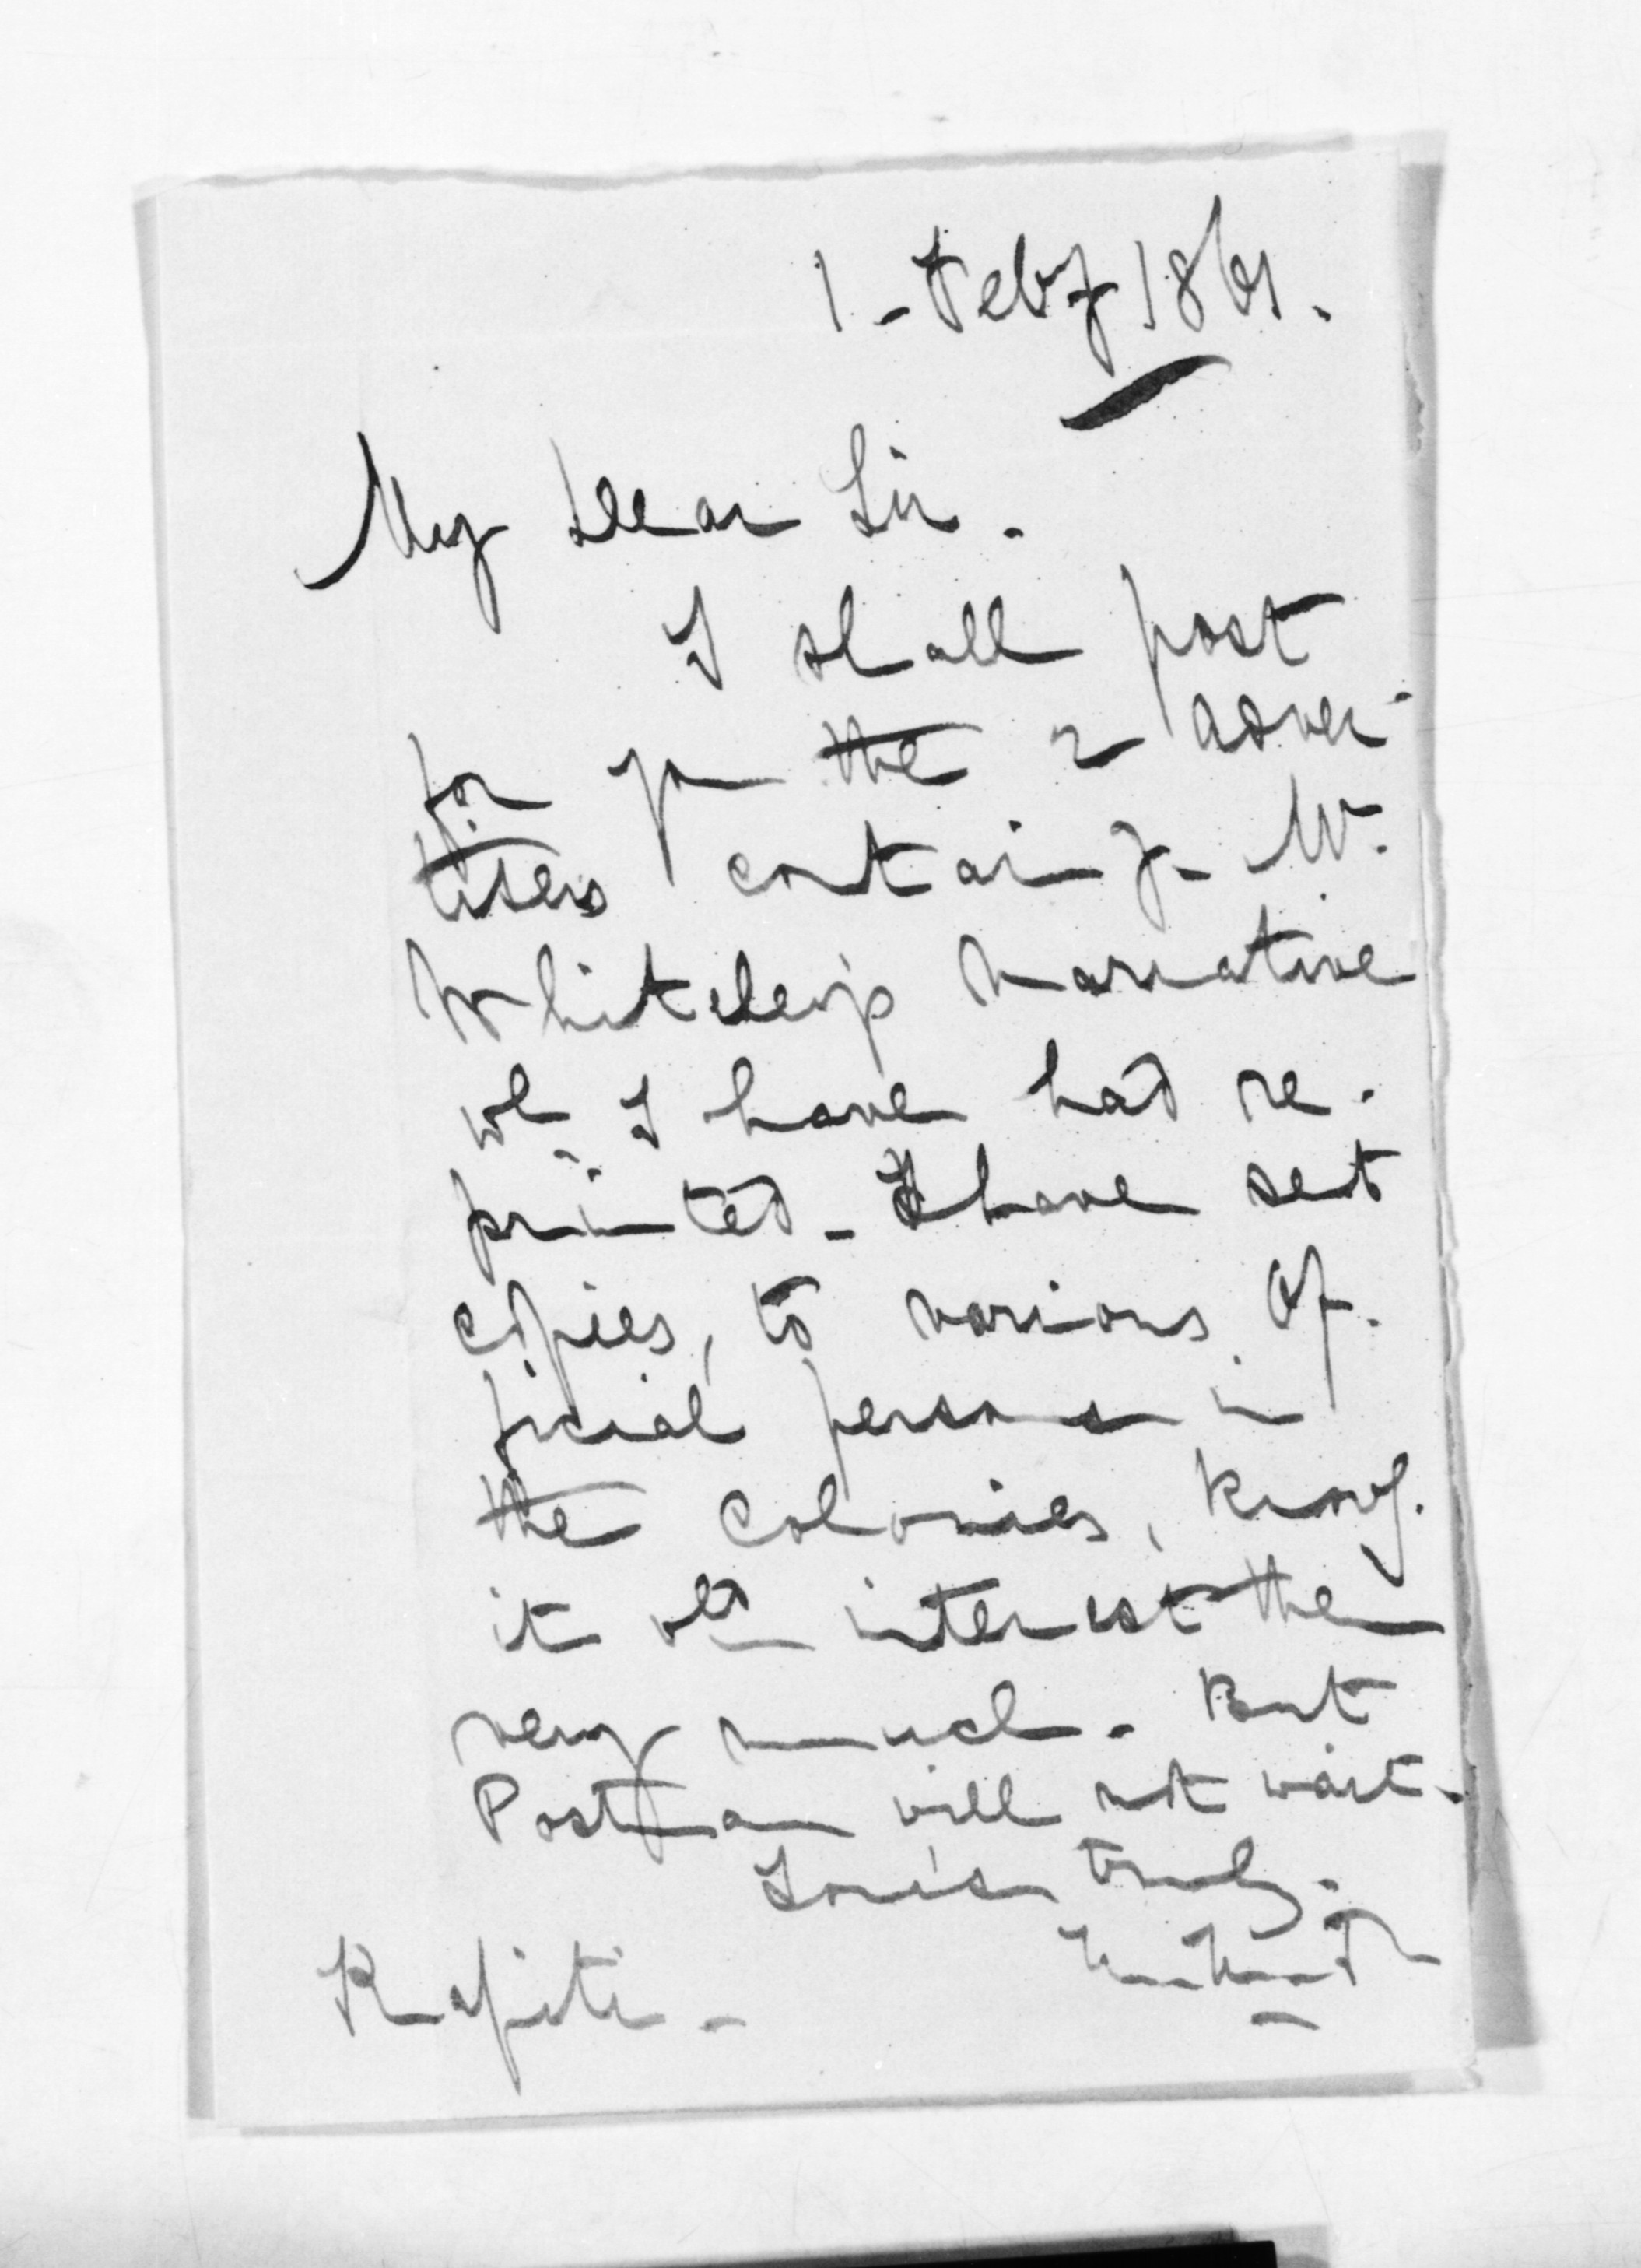 1 - Feby 1861.
My Dear Sir.
I shall post
for you the 2 Adver-
tisers containg. Mr.
Whiteley's narrative
wh. I have had re-
printed - I have sent
copies, to various of-
ficial persons in
the Colonies, knowg.
it wld interest them
very much. But
Postman will not wait.
Yours truly.
Kapiti -